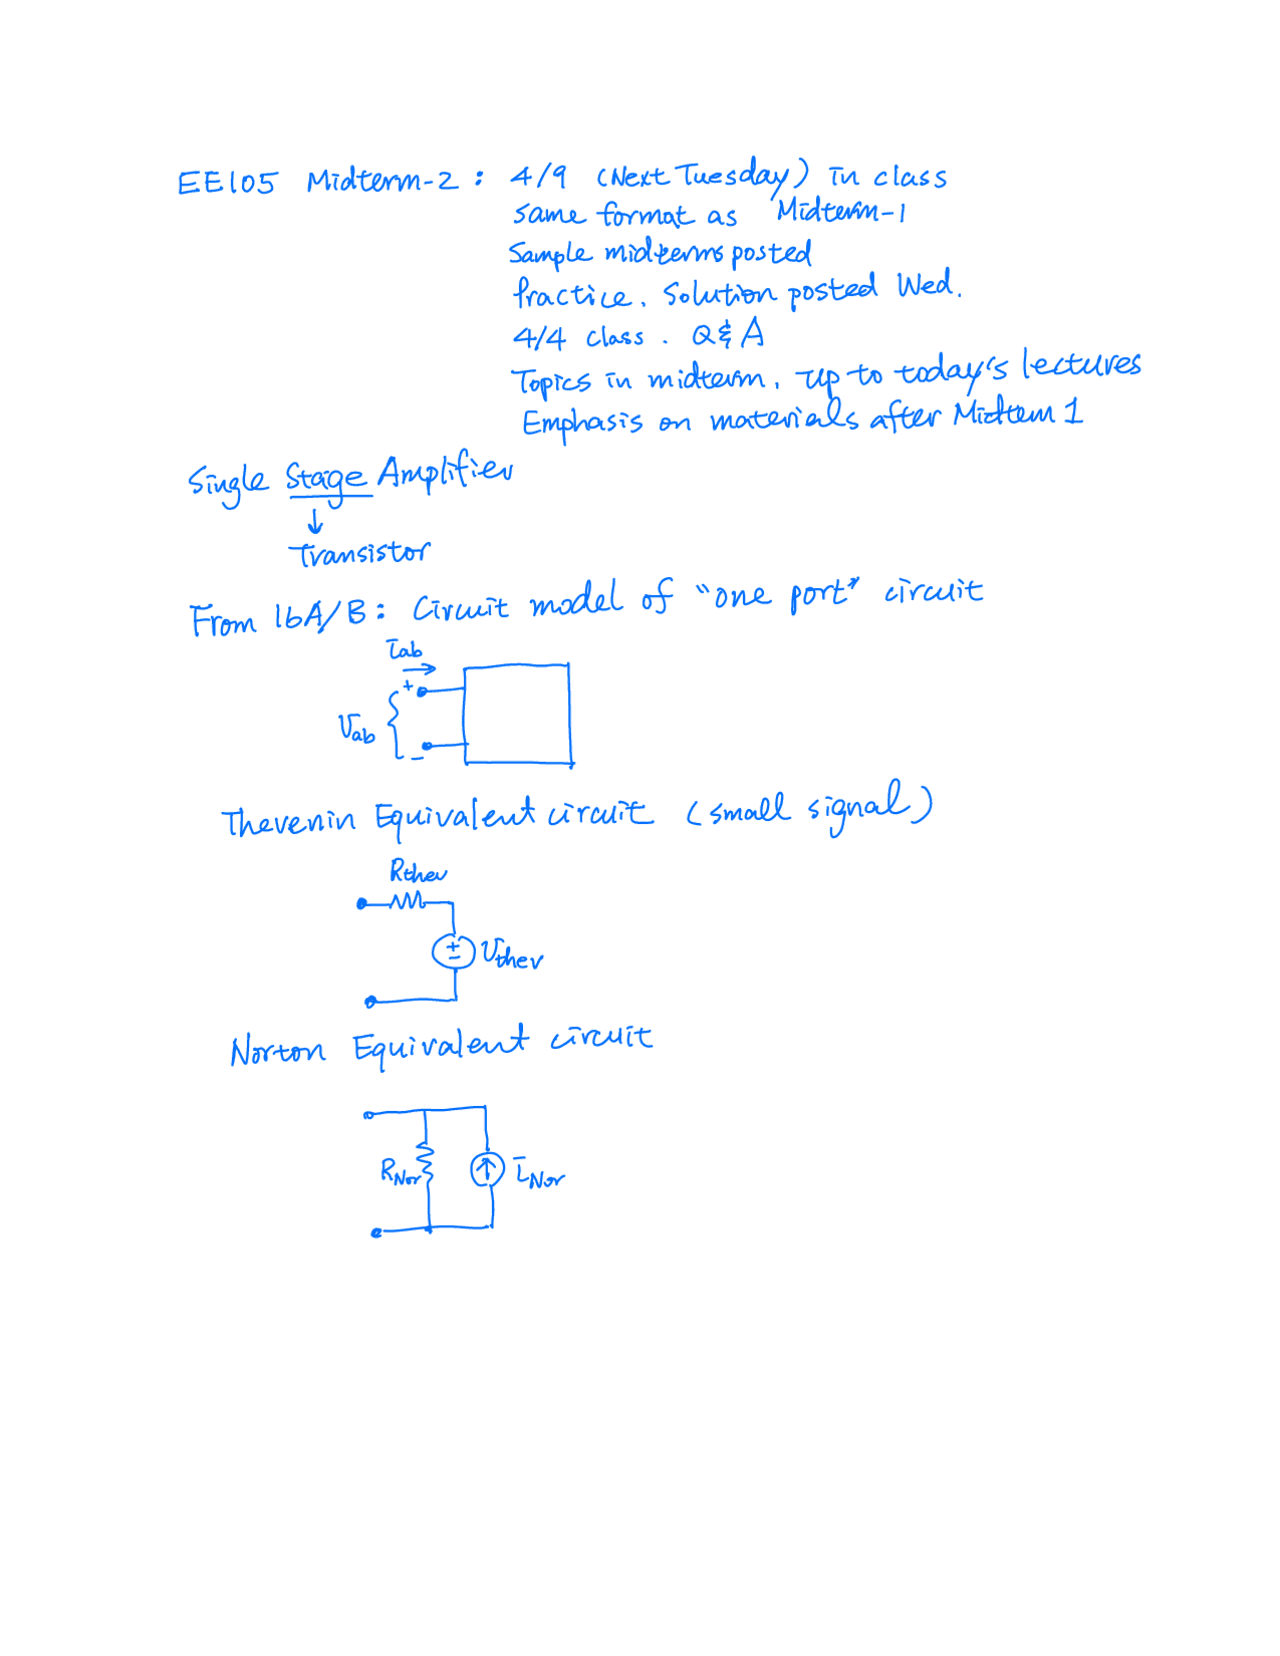 EE105 Midterm-2: 4/9 (Next Tuesday) in class
same format as Midterm-1
Sample midterms posted
Practice. Solution posted Wed.
4/4 class. Q & A
Topics in midterm, up to today's lectures
Emphasis on materials after Midtem 1
Single Stage Amplifier
↓
Transistor
From 16A/B: Circuit model of "one port" circuit
iab
+
Vab
-
Thevenin Equivalent circuit (small signal)
Rthev
+
- Vthev
Norton Equivalent circuit
RNor
iNor